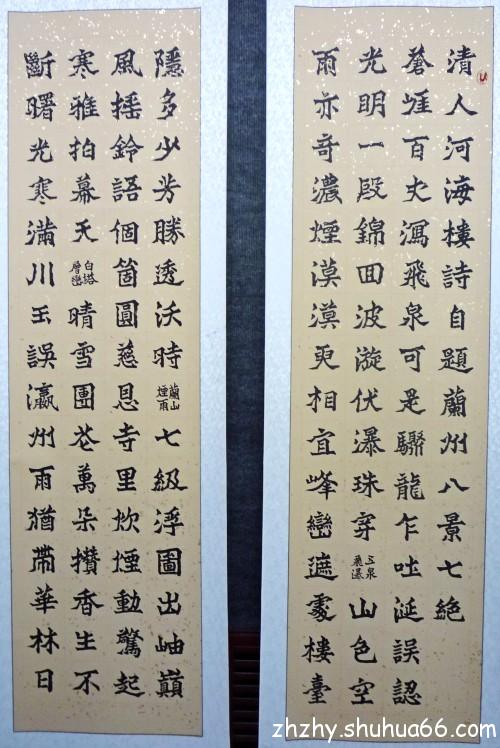 清人河海樓詩自題蘭州八景七絕
蒼崖百丈瀉飛泉可是驪龍乍吐涎誤認
光明一段錦囬波漩伏瀑珠穿五泉飛瀑山色空
雨亦奇濃煙漠漠更相宜峰巒遮處樓臺
隱多少芳勝透沃時蘭山煙雨七級浮圖出岫巔
風搖鈴語個箇圓慈恩寺里炊煙動驚起
寒雅拍幕天白塔層巒晴雪團花萬朵攢香生不
斷曙光寒滿川玉誤瀛州雨猶帶華林日
zhzhy.shuhua66.com